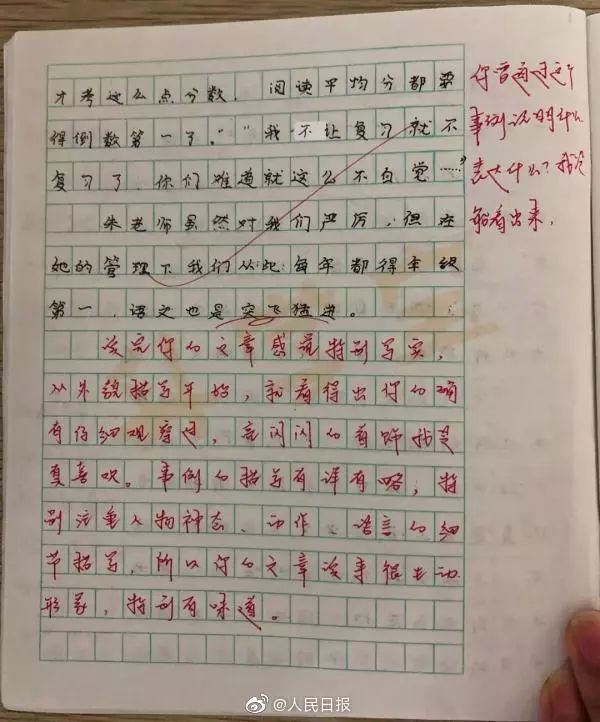 才考这么点分数，阅读平均分都要
得倒数第一了。”“我不让复习就不
复习了，你们难道就这么不自觉……”
朱老师虽然对我们严厉，但在
她的管理下我们从此每年都得年级
第一，语文也是突飞猛进。
读完你的文章感觉特别写实，
从外貌描写开始，就看得出你的确
有仔细观察过，亮闪闪的首饰我是
蛮喜欢。事例的描写有详有略，特
别注重人物神态、动作、语言的细
节描写，所以你的文章读来很生动
形象，特别有味道。
你曾通过这个
事例说明什么
表达什么？我没
能看出来。
@人民日报